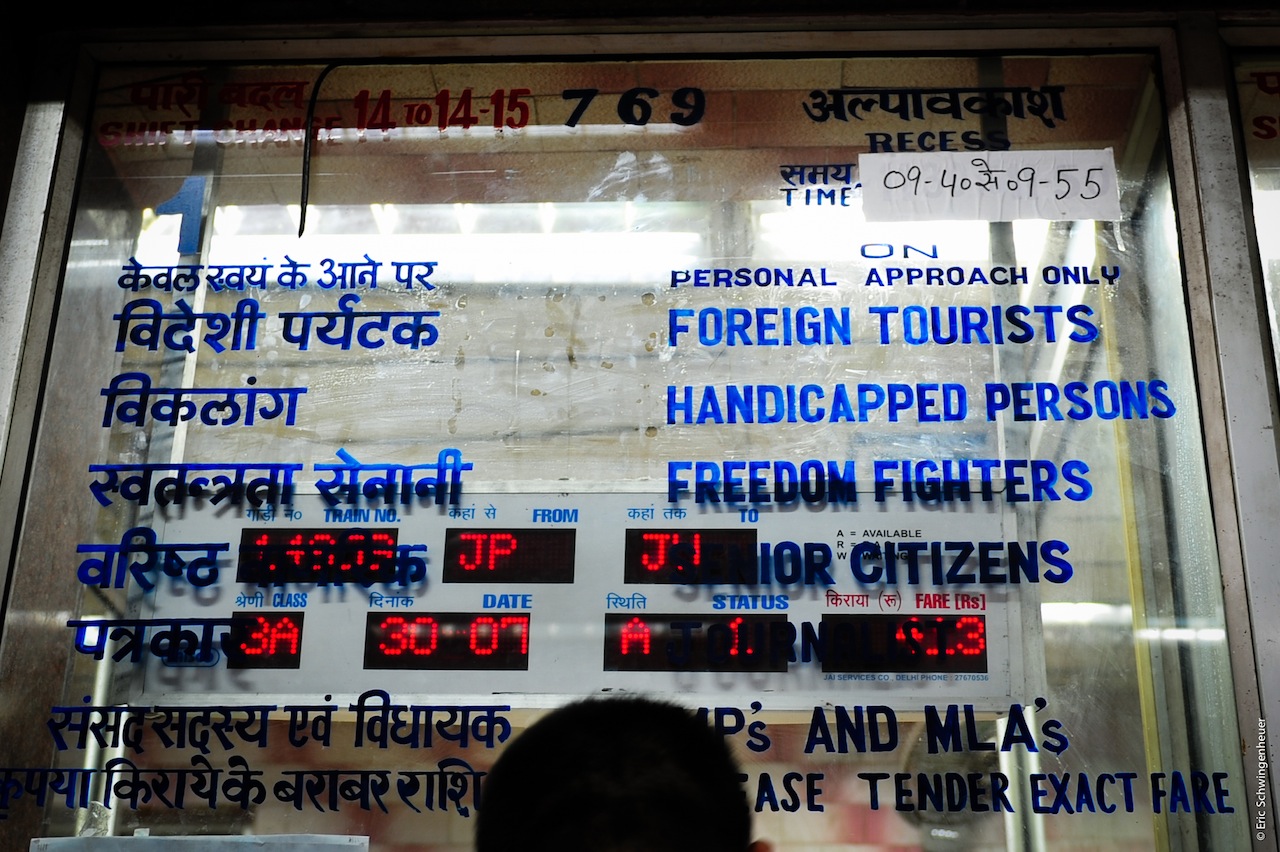 पारी बदल
SHIFT CHANGE 14 TO 14-15 7 6 9
अल्पावकाश
RECESS
समय
TIME
09-40 से 09-55
1
केवल स्वयं के आने पर
ON
PERSONAL APPROACH ONLY
विदेशी पर्यटक FOREIGN TOURISTS
विकलांग HANDICAPPED PERSONS
स्वतन्त्रता सेनानी FREEDOM FIGHTERS
गाड़ी न० TRAIN NO. कहां से FROM कहां तक TO
A = AVAILABLE
R =
W =
वरिष्ठ SENIOR CITIZENS
JP
श्रेणी CLASS दिनांक DATE स्थिति STATUS किराया (रू) FARE [Rs]
पत्रकार JOURNALIST
3A 30 07 A 1
JAI SERVICES CO., DELHI PHONE : 27670536
संसद सदस्य एवं विधायक MP's AND MLA's
कृपया किराये के बराबर राशि TENDER EXACT FARE
© Eric Schwingenheuer